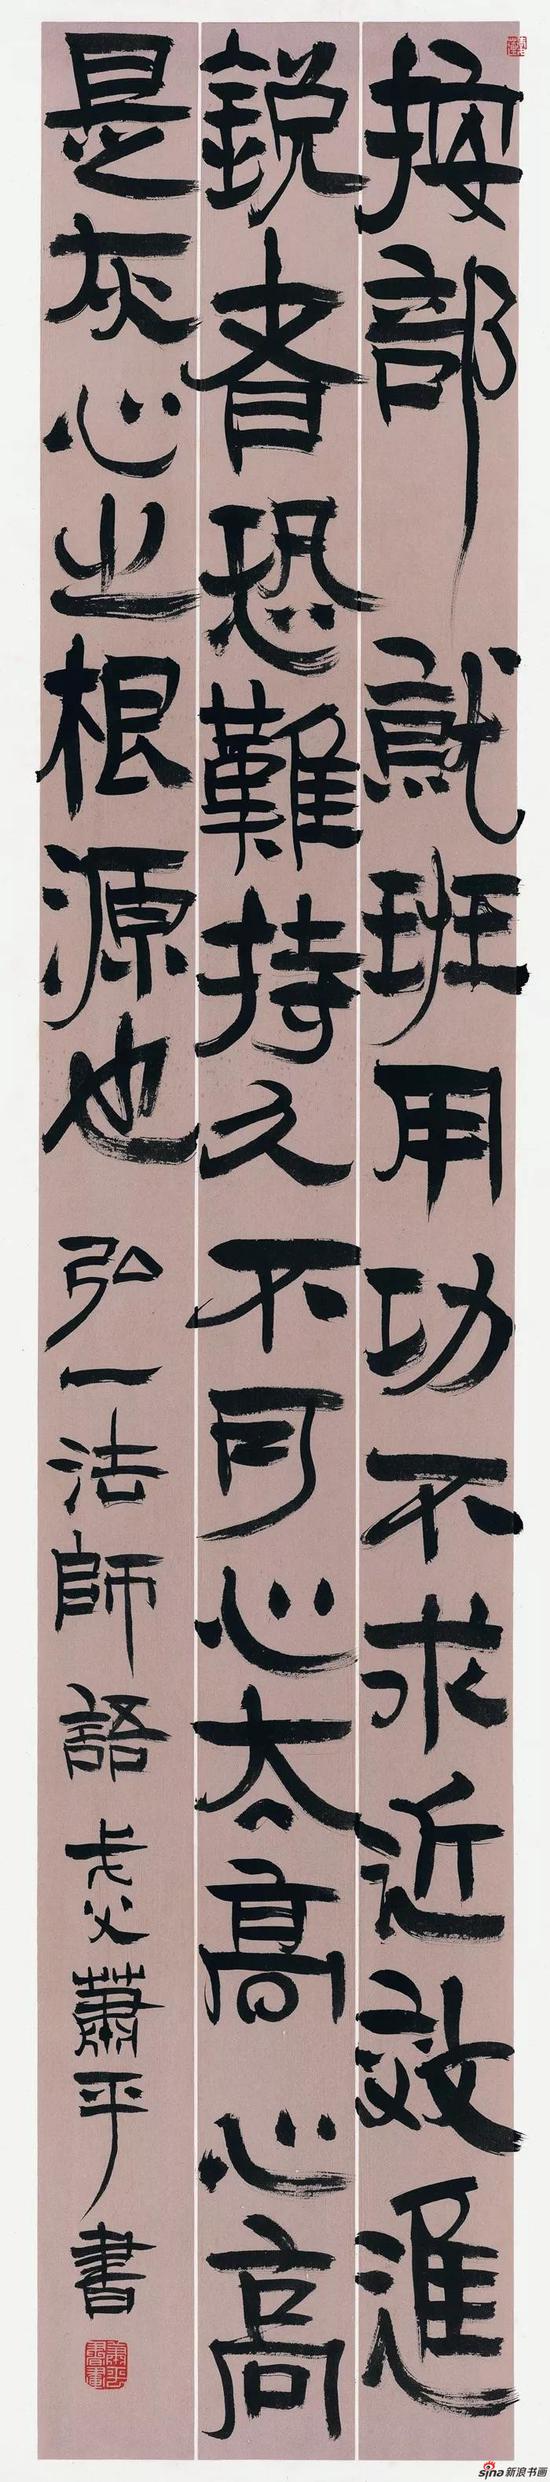 按部就班用功不求近效進
銳者恐難持久不可心太高心高
是灰心之根源也 弘一法師語 戈父蕭平書
蕭平書畫
sina新浪书画